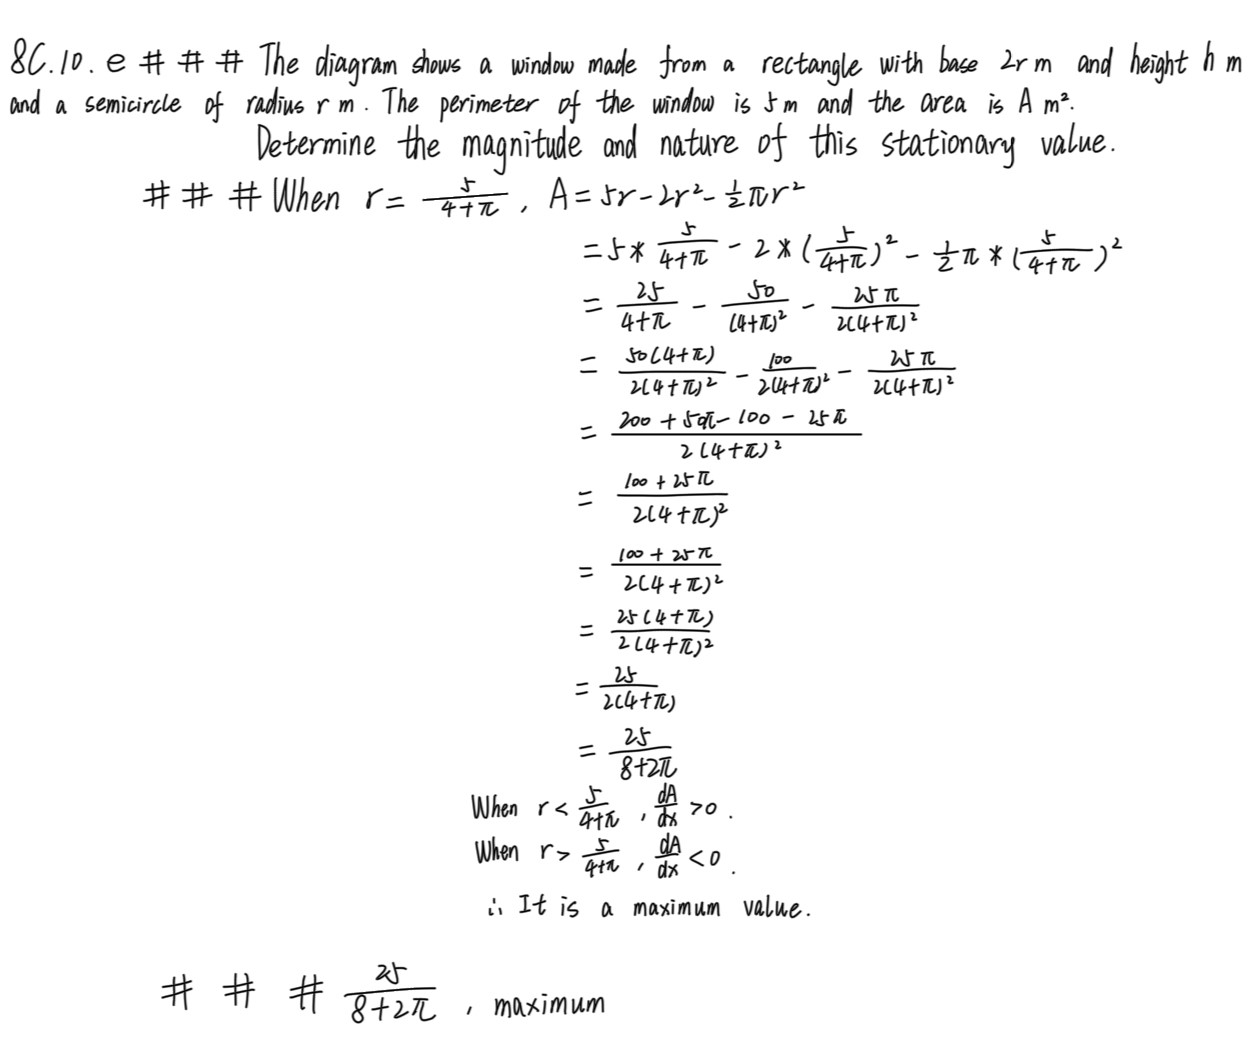 8C.10.e # # # The diagram shows a window made from a rectangle with base 2r m and height h m
and a semicircle of radius r m. The perimeter of the window is 5 m and the area is A m².
Determine the magnitude and nature of this stationary value.
# # # When r = 5/(4+π), A = 5r - 2r² - 1/2 πr²
= 5 * 5/(4+π) - 2 * (5/(4+π))² - 1/2 π * (5/(4+π))²
= 25/(4+π) - 50/(4+π)² - 25π/2(4+π)²
= 50(4+π)/2(4+π)² - 100/2(4+π)² - 25π/2(4+π)²
= (200 + 50π - 100 - 25π)/2(4+π)²
= (100 + 25π)/2(4+π)²
= (100 + 25π)/2(4+π)²
= 25(4+π)/2(4+π)²
= 25/2(4+π)
= 25/(8+2π)
When r < 5/(4+π), dA/dx > 0.
When r > 5/(4+π), dA/dx < 0.
∴ It is a maximum value.
# # # 25/(8+2π), maximum